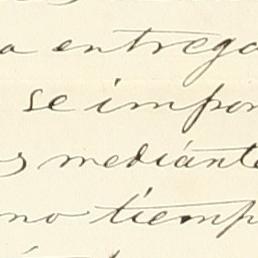 a entrega
se impon
s mediante
no tiemp